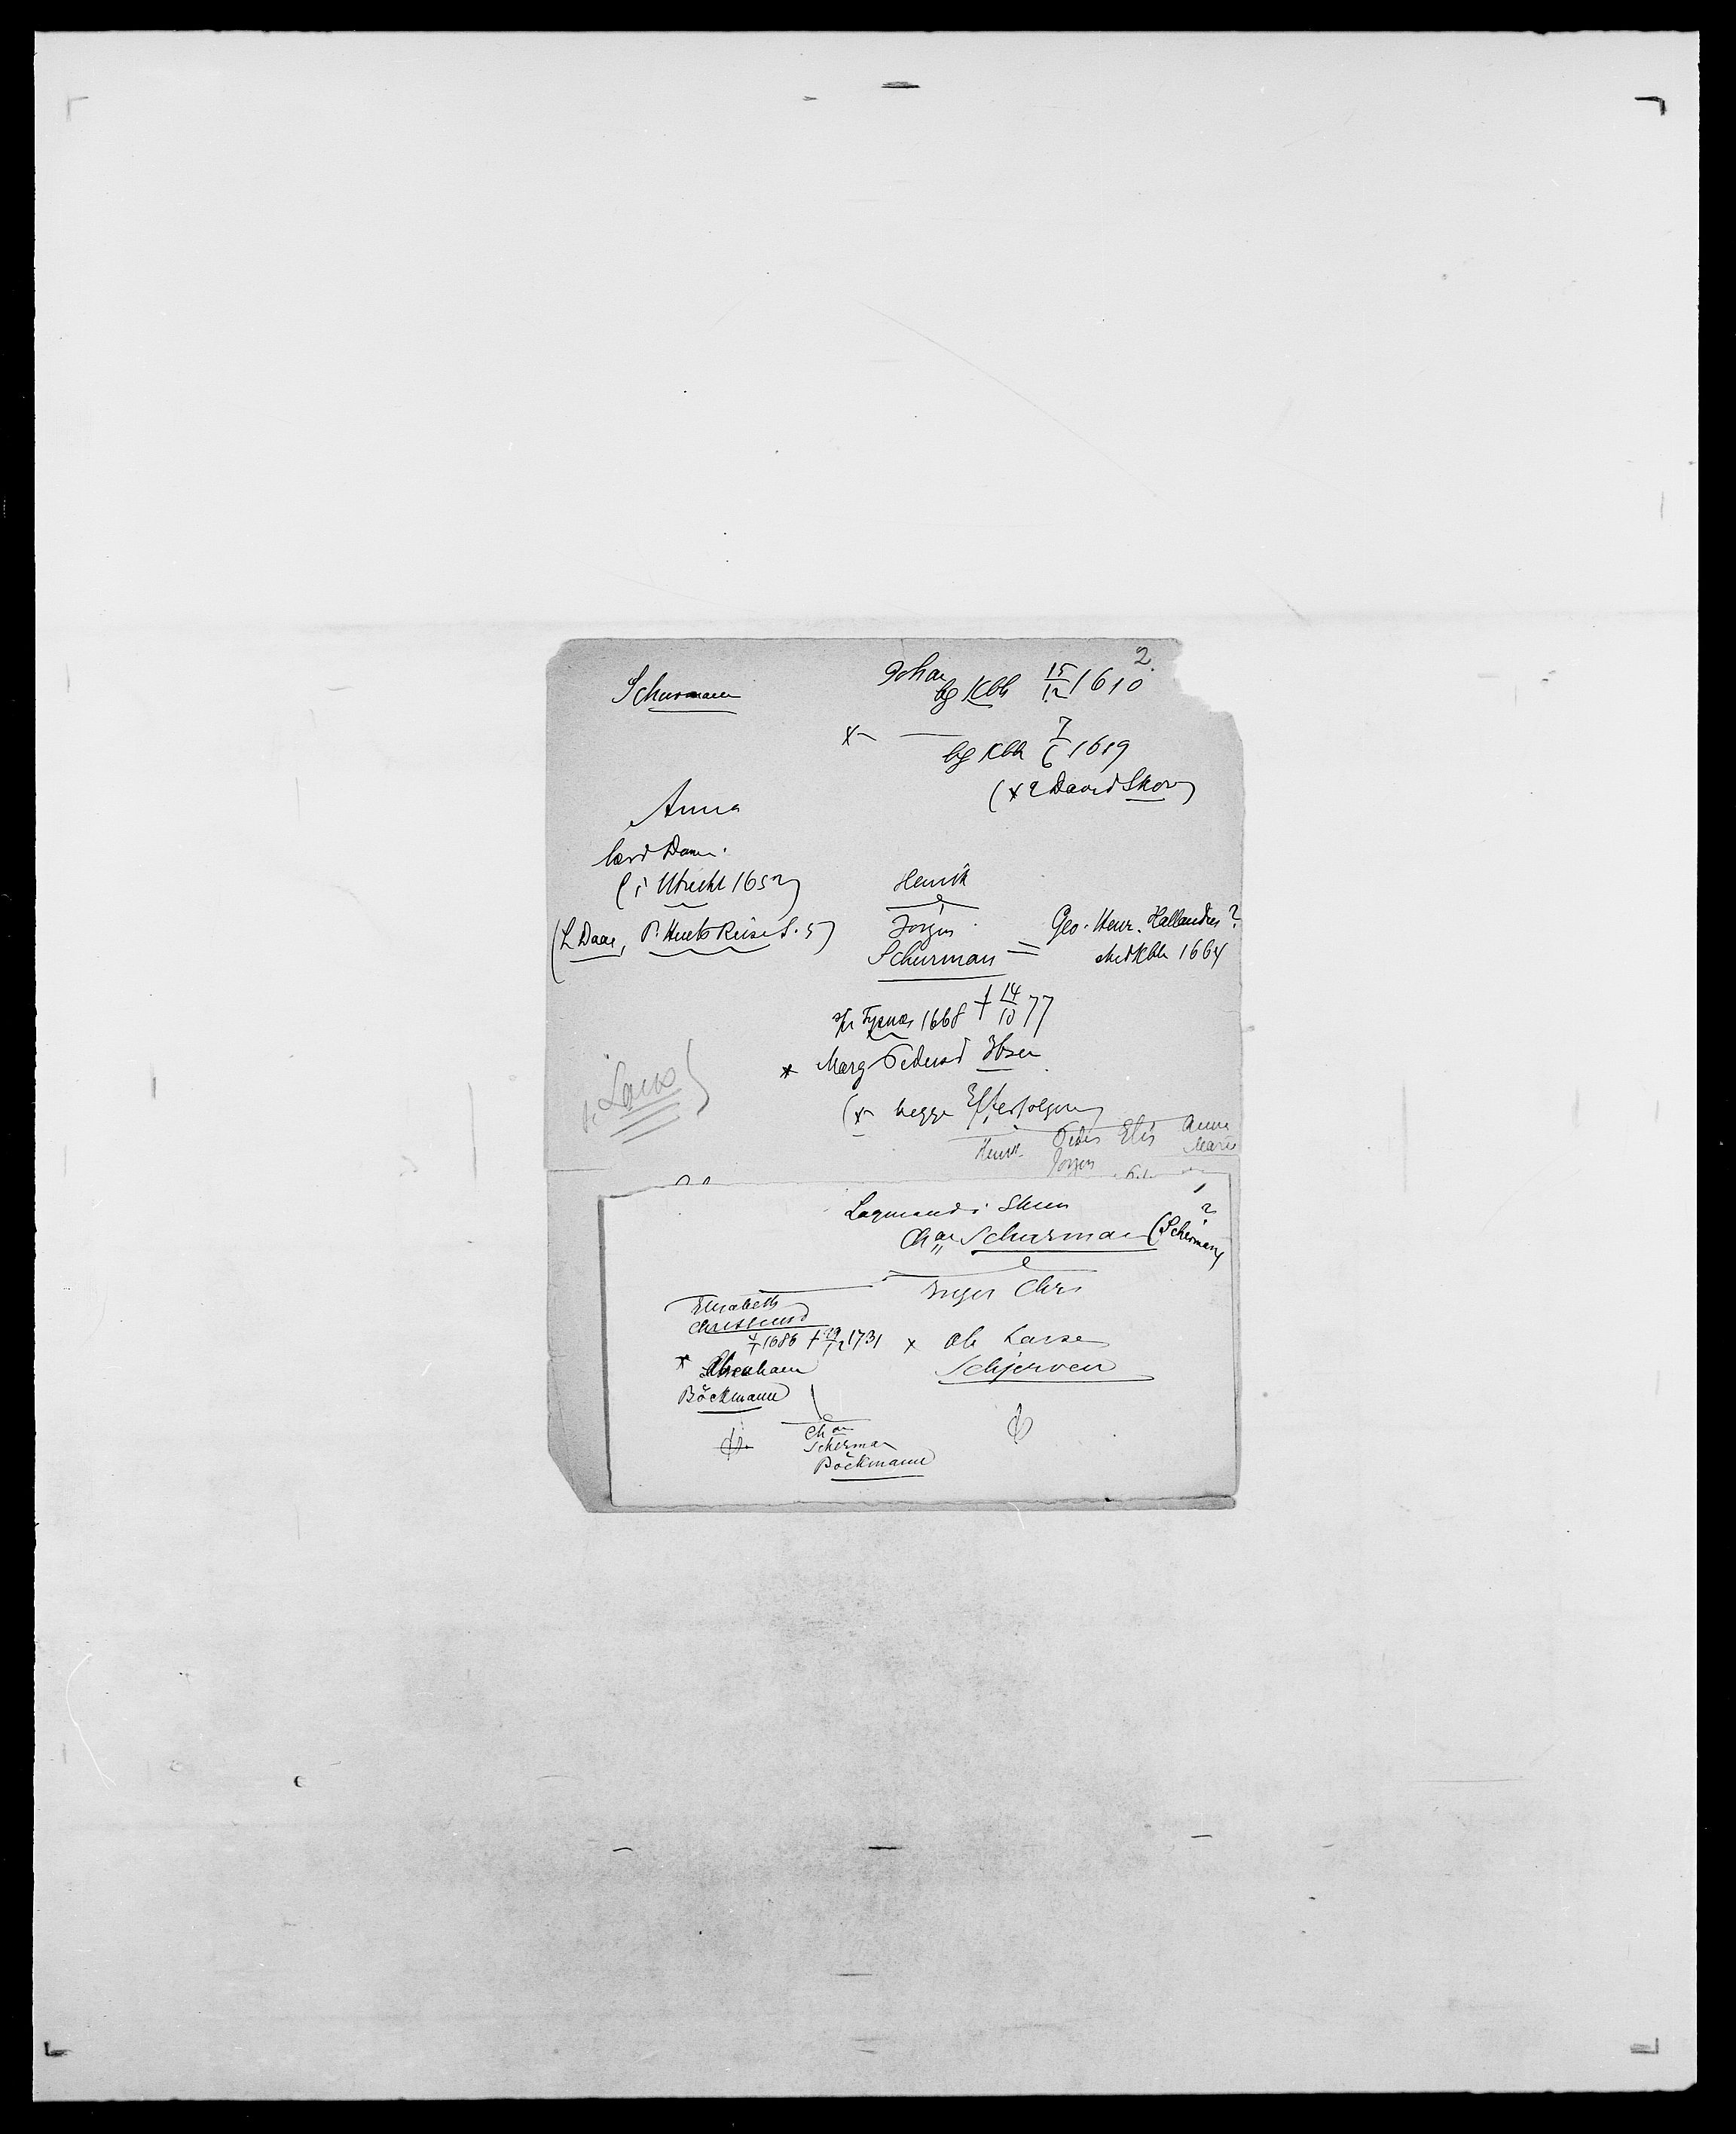 2.
Schurmann
Johan
bg Kbh 15/12 1610
x —
bg Kbh 7/6 1619
(x e David Skov)
Anna
lærd Dame.
(i Utrecht 1652)
(L Daae, P. Huets Reise S. 5)
Henrik
Jörgen
Schurman = Geo. Henr. Hallandus?
Med Kbh 1664
spr Tysnæs 1668 † 14/10 77
* Marg Pedersd Ibsen
(x begge Efterfølgere)
Henrik Peder Elis Anne
Jörgen Marie
Lagmand i Skien
?
Chr Schurman (Scherman)
Inger Chrs
Elisabeth
Christensd
1686 † 19/12 1731
x Ole Larsen
Schjerven
* Abraham
Böckmann
Chr
Scherman
Böckmann